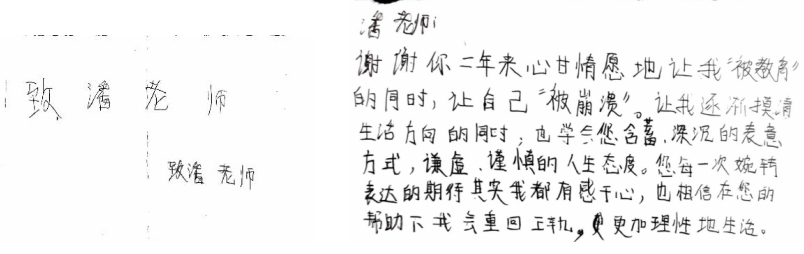 致潘老师
致潘老师
潘老师:
谢谢你二年来心甘情愿地让我“被教育”
的同时，让自己“被崩溃”。让我逐渐摸清
生活方向的同时，也学会您含蓄、深沉的表意
方式，谦虚、谨慎的人生态度。您每一次婉转
表达的期待其实我都有感于心，也相信在您的
帮助下我会重回正轨，更加理性地生活。